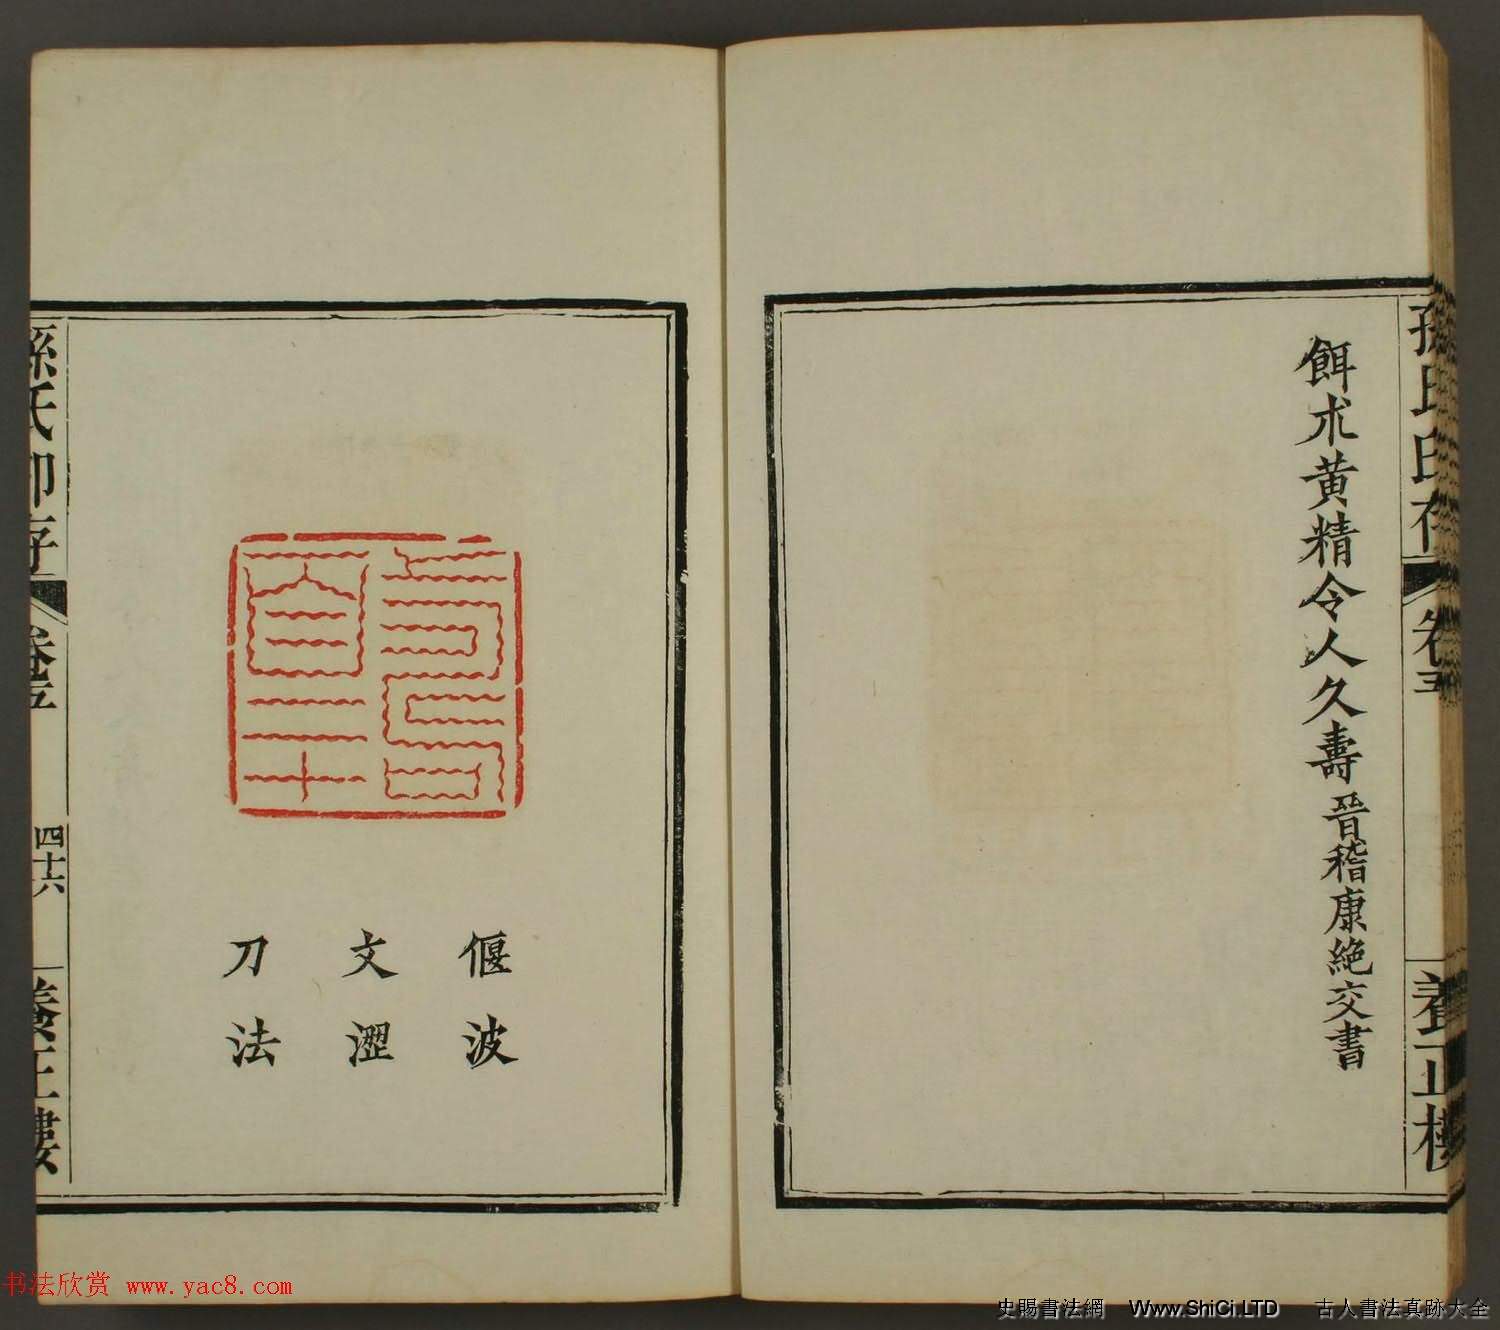 孫氏印存
卷五
養正樓
餌朮黃精令人久壽晉稽康絶交書
偃波
文澀
刀法
孫氏印存
卷五
四十六
養正樓
书法欣赏 www.yac8.com
史賜書法網 Www.ShiCi.LTD 古人書法真跡大全